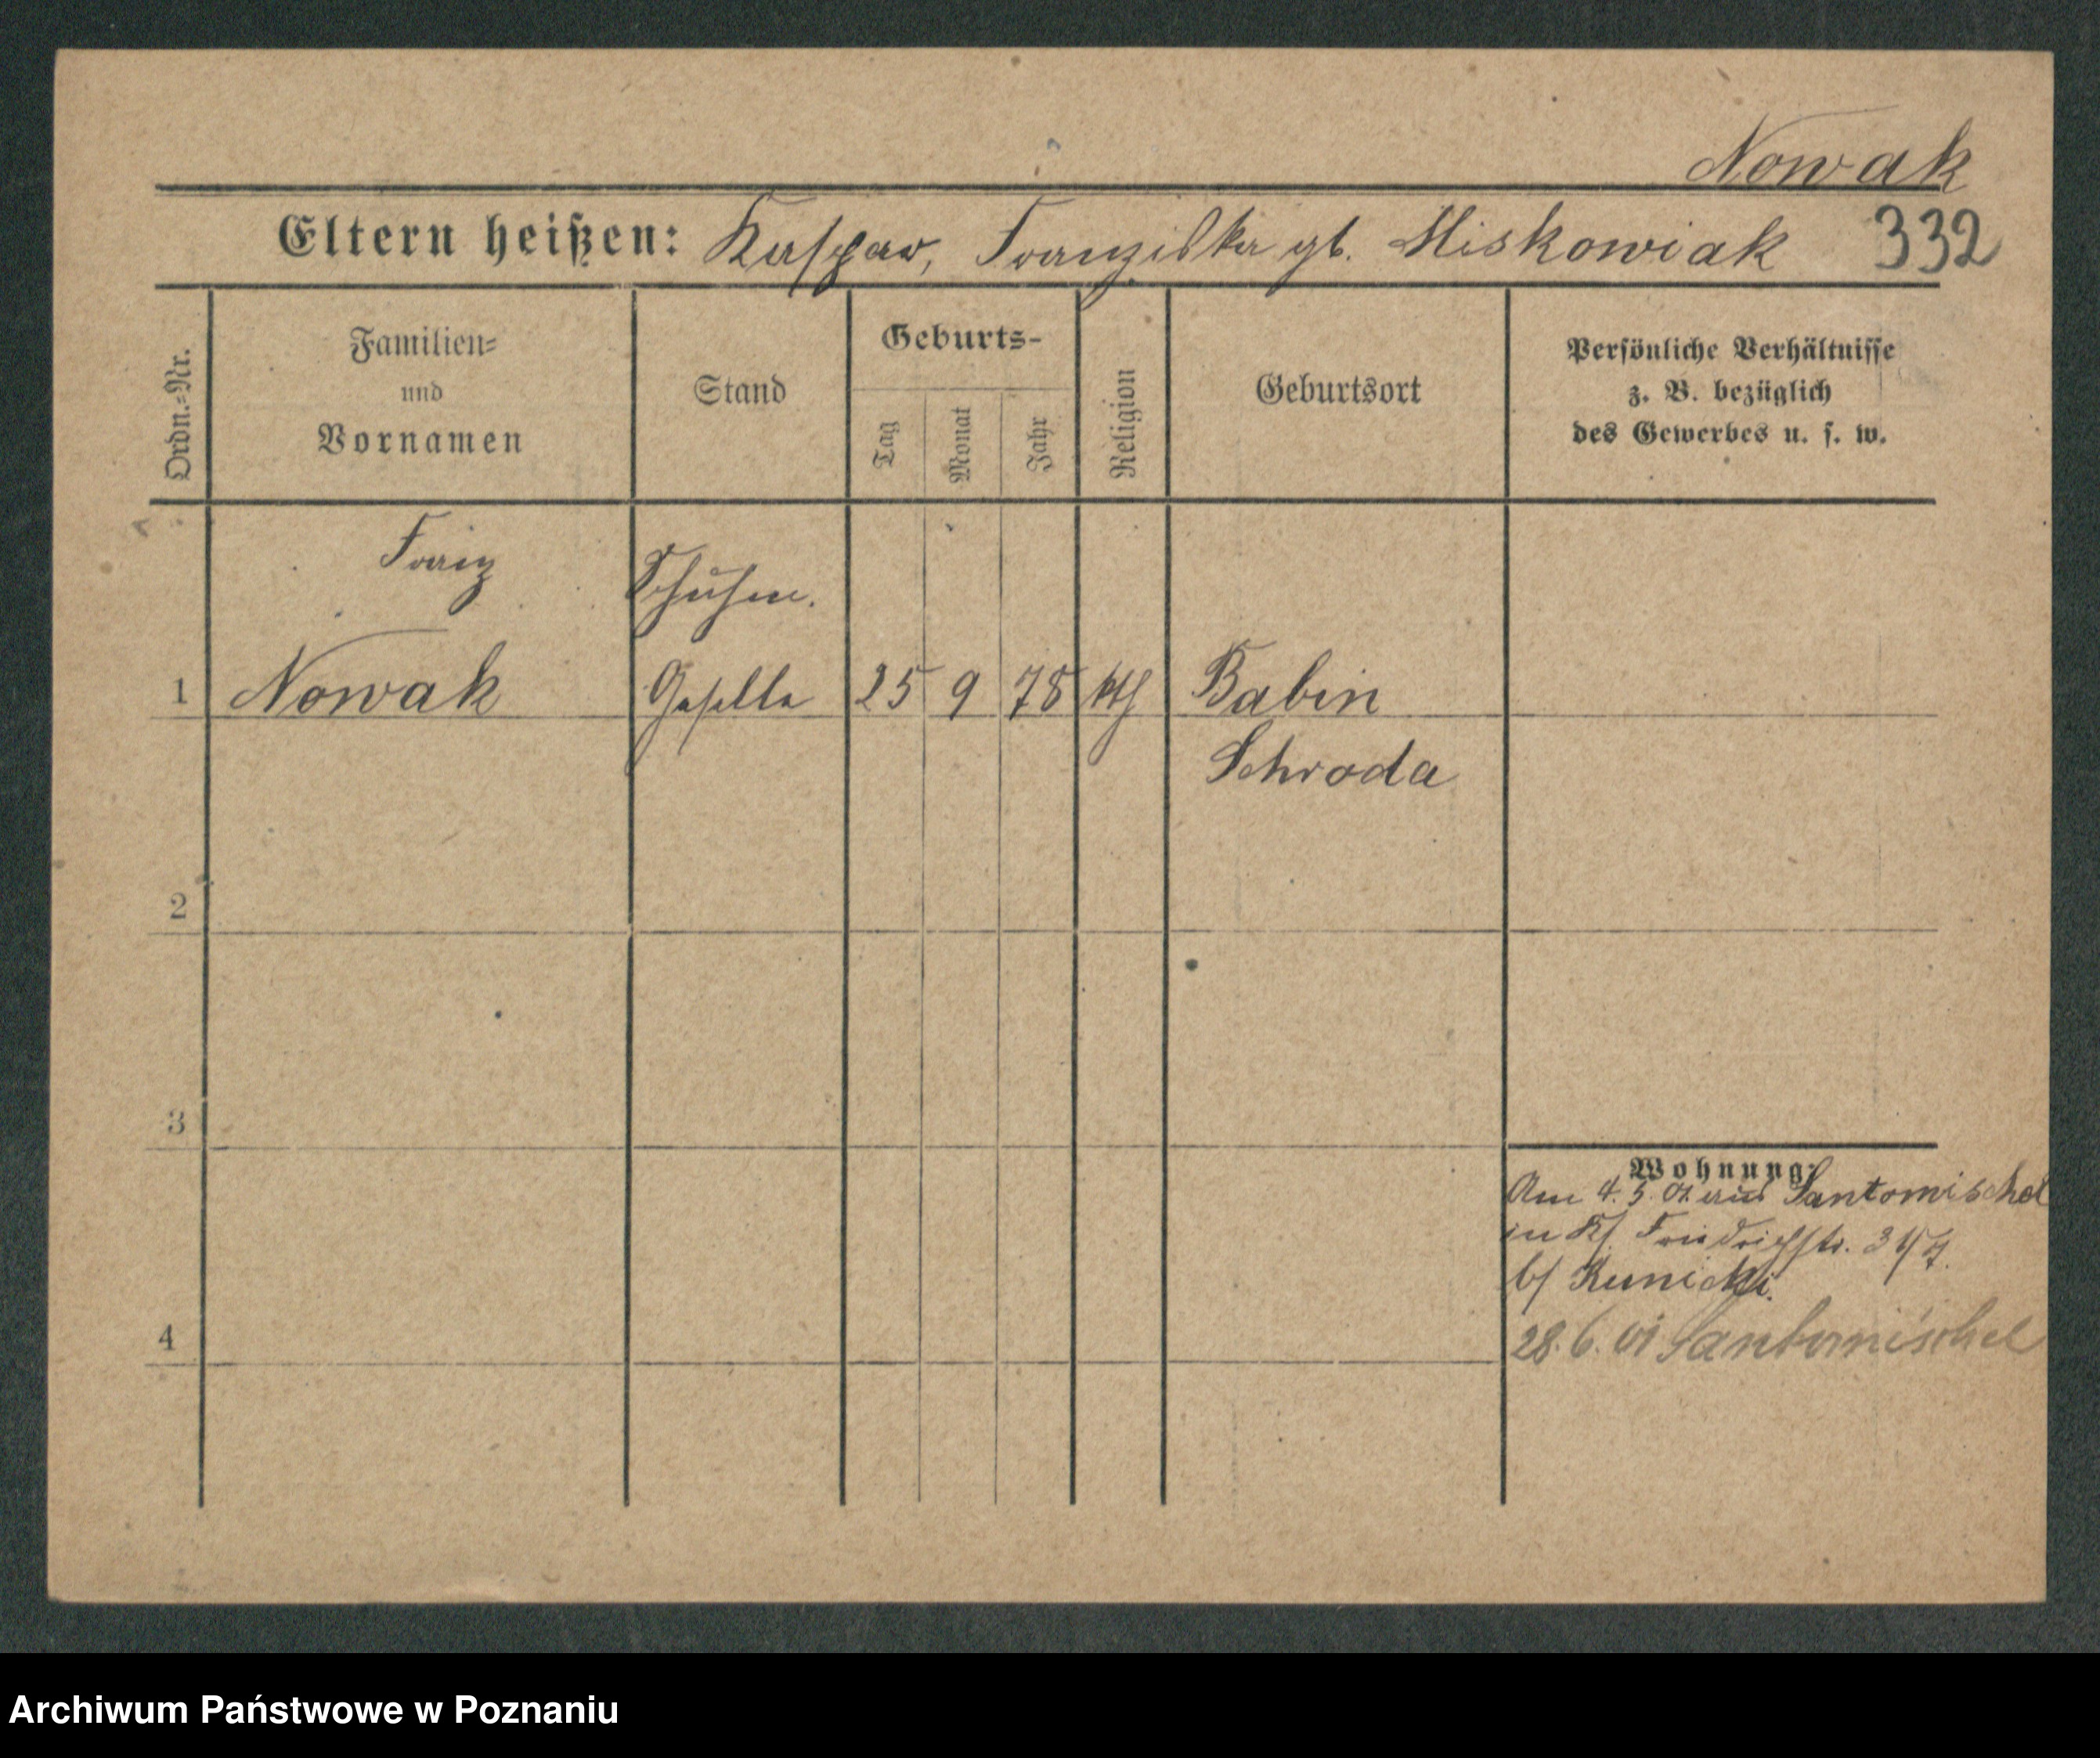 Nowak
Eltern heißen: Kaspar, Franziska gb. Miskowiak 332
Ordn.=Nr.
Familien=
und
Vornamen
Stand
Geburts-
Tag
Monat
Jahr
Religion
Geburtsort
Persönliche Verhältnisse
z. B. bezüglich
des Gewerbes u. s. w.
Franz
Schuhm.
1 Nowak Geselle 25 9 78 kth Babin
Schroda
2
3
Wohnung:
Am 4. 5. 01 aus Santomischel
in Friedrichstr.
b/ Kunicki.
4 28. 6. 01 Santomischel
Archiwum Państwowe w Poznaniu